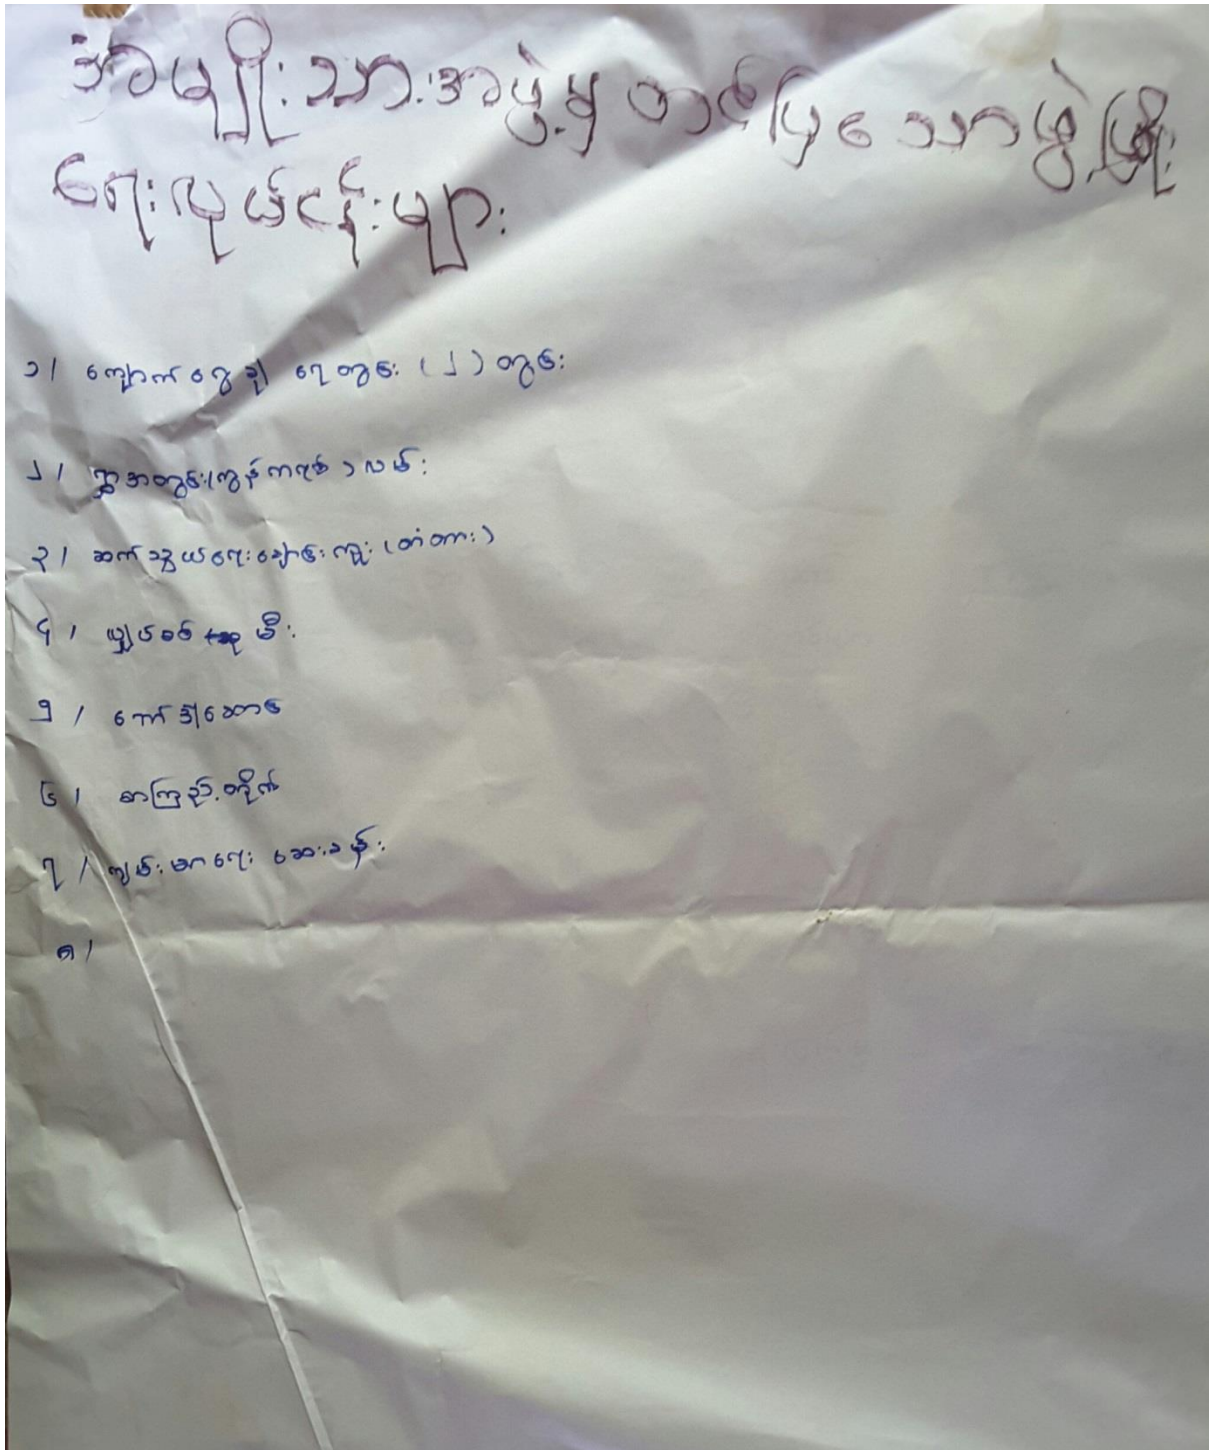 အမျိုးသားအဖွဲ့မှ တင်ပြသောဖွဲ့ဖြိုး
ရေးလုပ်ငန်းများ
၁/ ကျောက်ရွေချ ရေတွင်း (၂) တွင်း
၂/ ရွာအတွင်း(ကွန်ကရစ်)လမ်း
၃/ ဆက်သွယ်ရေးချောင်းကူး (တံတား)
၄/ လျှပ်စစ် မီး
၅/ ဘော်ဒါဆောင်
၆/ စာကြည့်တိုက်
၇/ ကျမ်းမာရေး ဆေးခန်း
၈/